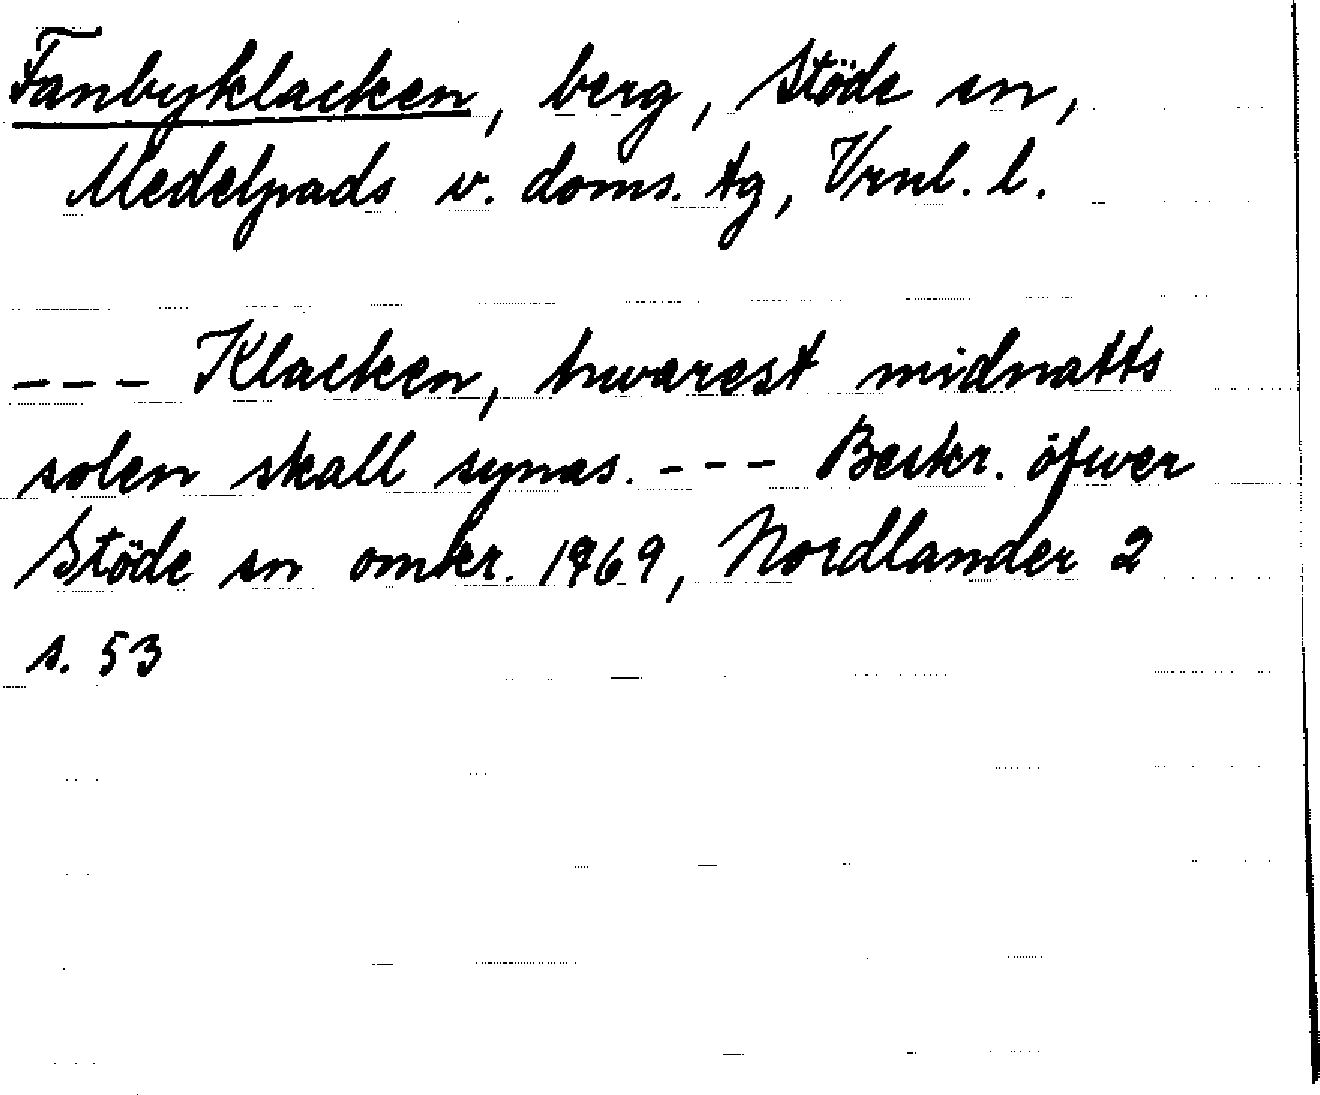 Fanbyklacken, berg, Stöde sn,
Medelpads v. doms. tg, Vrnl. l.
--- Klacken, hwarest midnatts
solen skall synas. --- Beskr. öfwer
Stöde sn omkr. 1769, Nordlander 2
s. 53